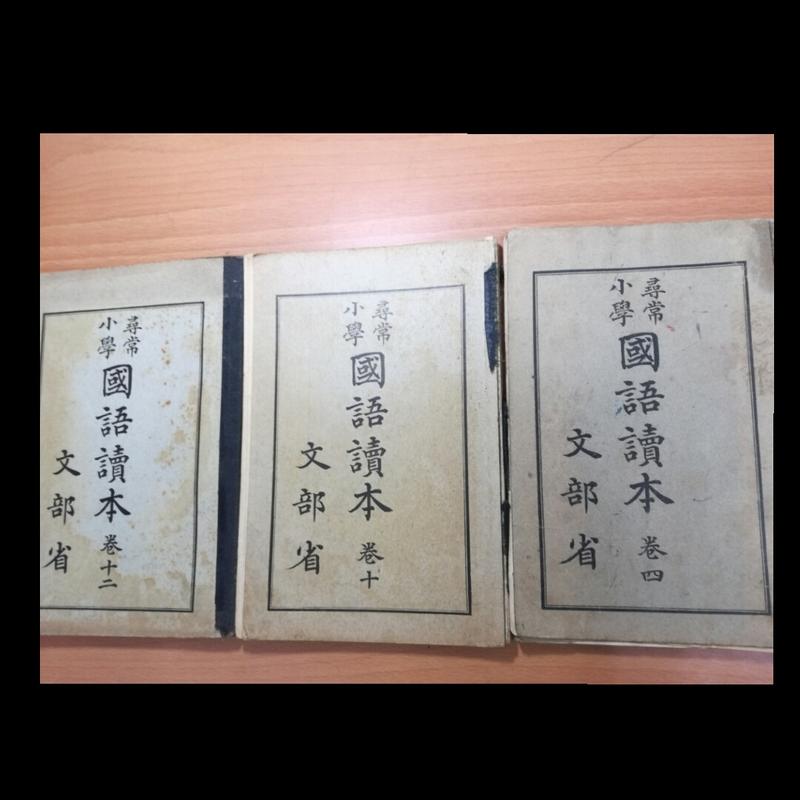 尋常
小學
國語讀本 卷四
文部省
尋常
小學
國語讀本 卷十
文部省
尋常
小學
國語讀本 卷十二
文部省